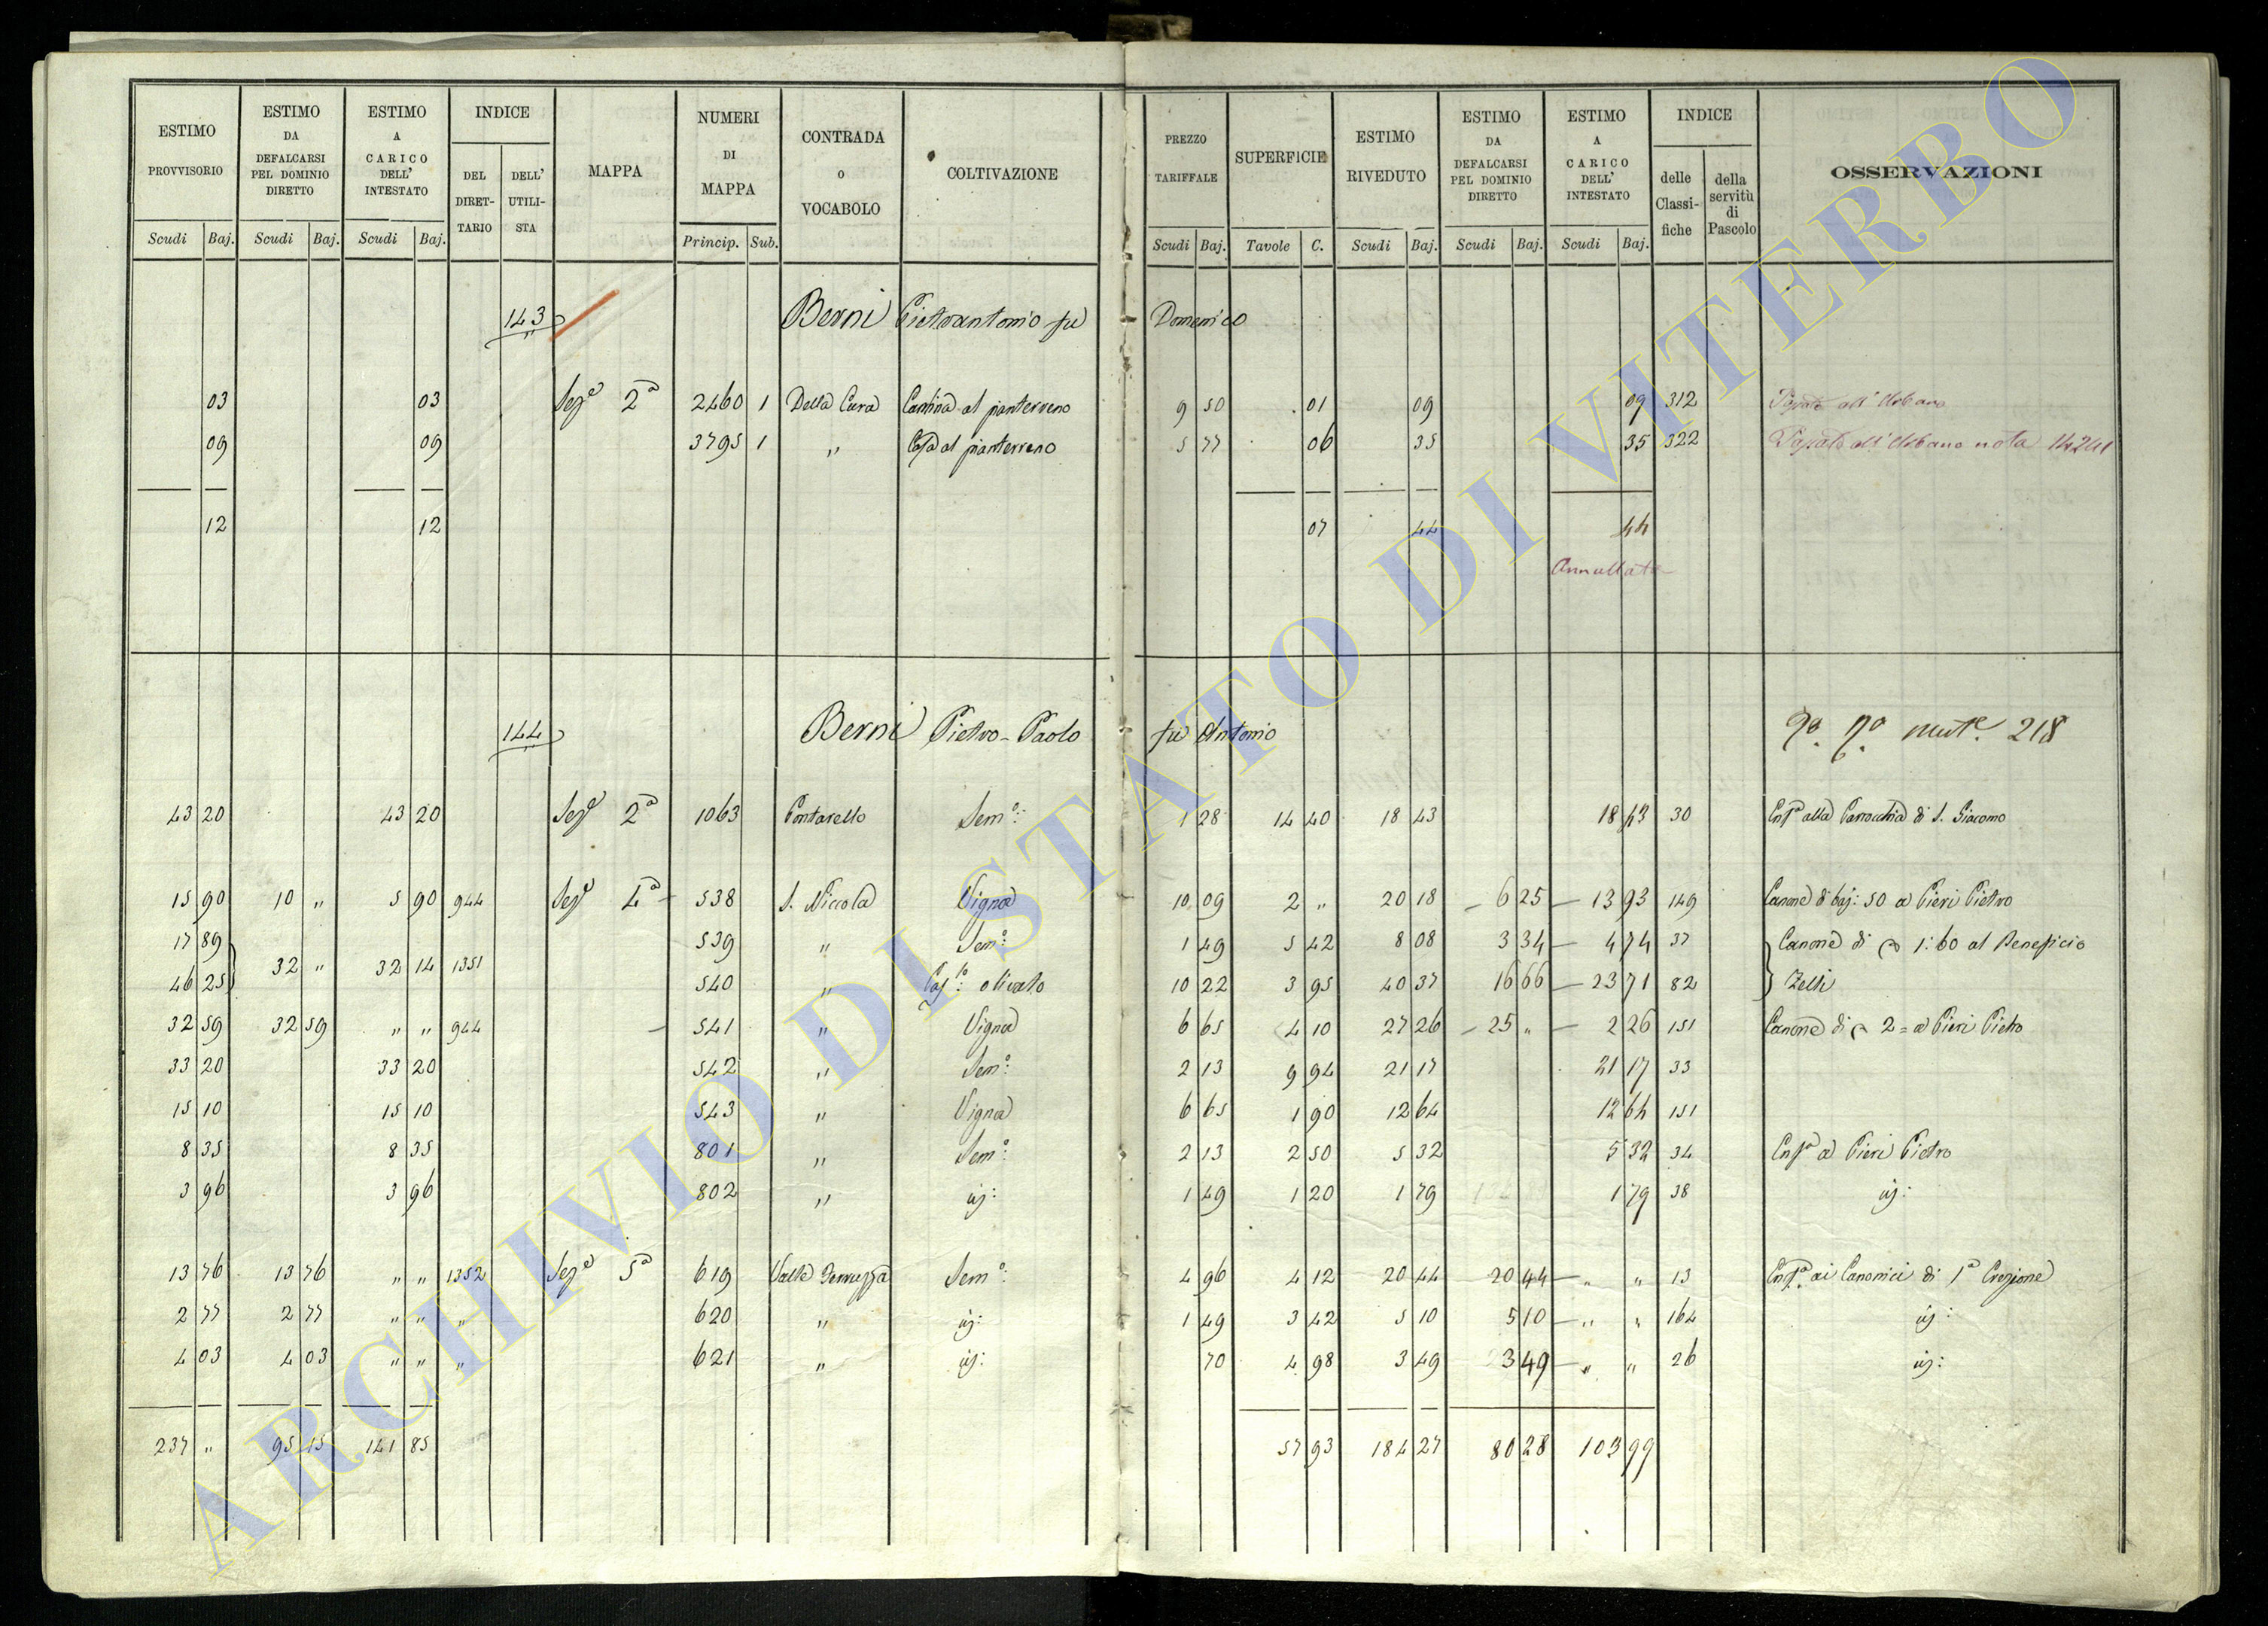 ESTIMO PROVVISORIO | ESTIMO DA DEFALCARSI PEL DOMINIO DIRETTO | ESTIMO A CARICO DELL' INTESTATO | INDICE | MAPPA | NUMERI DI MAPPA | CONTRADA o VOCABOLO | COLTIVAZIONE | PREZZO TARIFFALE | SUPERFICIE | ESTIMO RIVEDUTO | ESTIMO DA DEFALCARSI PEL DOMINIO DIRETTO | ESTIMO A CARICO DELL' INTESTATO | INDICE | OSSERVAZIONI
DEL DIRETTARIO | DELL' UTILISTA | delle Classifiche | della servitù di Pascolo
Scudi | Baj. | Scudi | Baj. | Scudi | Baj. | Princip. | Sub. | Scudi | Baj. | Tavole | C. | Scudi | Baj. | Scudi | Baj. | Scudi | Baj.
143 Berni Pietrantonio fu Domenico
03 | 03 | Sezᵉ 2ᵃ | 2460 | 1 | Della Cura | Cantina al pianterreno | 9 50 | 01 | 09 | 09 | 312 | all' Urbano
09 | 09 | 3795 | 1 | " | Casa al pianterreno | 5 77 | 06 | 35 | 35 | 322 | all' Urbano nota 14241
12 | 12 | 07 | 44 | 44
Annullata
144 Berni Pietro-Paolo fu Antonio | mutᵉ. 218
43 20 | 43 20 | Sezᵉ 2ᵃ | 1063 | Pontarello | Semᵒ: | 1 28 | 14 40 | 18 43 | 18 43 | 30 | Enfᵃ alla Parrocchia di S. Giacomo
15 90 | 10 " | 5 90 | 944 | Sezᵉ 4ᵃ | 538 | S. Niccola | Vigna | 10 09 | 2 " | 20 18 | 6 25 | 13 93 | 149 | Canone di baj: 50 a Pieri Pietro
17 89 | 539 | " | Semᵒ: | 1 49 | 5 42 | 8 08 | 3 34 | 4 74 | 37 | Canone di 1:60 al Beneficio
46 25 | 32 " | 32 14 | 1351 | 540 | " | olivato | 10 22 | 3 95 | 40 37 | 16 66 | 23 71 | 82 | Zelli
32 59 | 32 59 | " " | 944 | 541 | " | Vigna | 6 65 | 4 10 | 27 26 | 25 " | 2 26 | 151 | Canone di 2= a Pieri Pietro
33 20 | 33 20 | 542 | " | Semᵒ: | 2 13 | 9 94 | 21 17 | 21 17 | 33
15 10 | 15 10 | 543 | " | Vigna | 6 65 | 1 90 | 12 64 | 12 64 | 151
8 35 | 8 35 | 801 | " | Semᵒ: | 2 13 | 2 50 | 5 32 | 5 32 | 34 | Enfᵃ a Pieri Pietro
3 96 | 3 96 | 802 | " | id: | 1 49 | 1 20 | 1 79 | 1 79 | 38 | id:
13 76 | 13 76 | " " | 1352 | Sezᵉ 5ᵃ | 619 | Valle | Semᵒ: | 4 96 | 4 12 | 20 44 | 20 44 | " " | 13 | Enfᵃ. ai Canonici di 1ᵃ Erezione
2 77 | 2 77 | " " | " | 620 | " | id: | 1 49 | 3 42 | 5 10 | 5 10 | " " | 164 | id:
4 03 | 4 03 | " " | " | 621 | " | id: | 70 | 4 98 | 3 49 | 3 49 | " " | 26 | id:
237 " | 95 15 | 141 85 | 57 93 | 184 27 | 80 28 | 103 99
ARCHIVIO DI STATO DI VITERBO